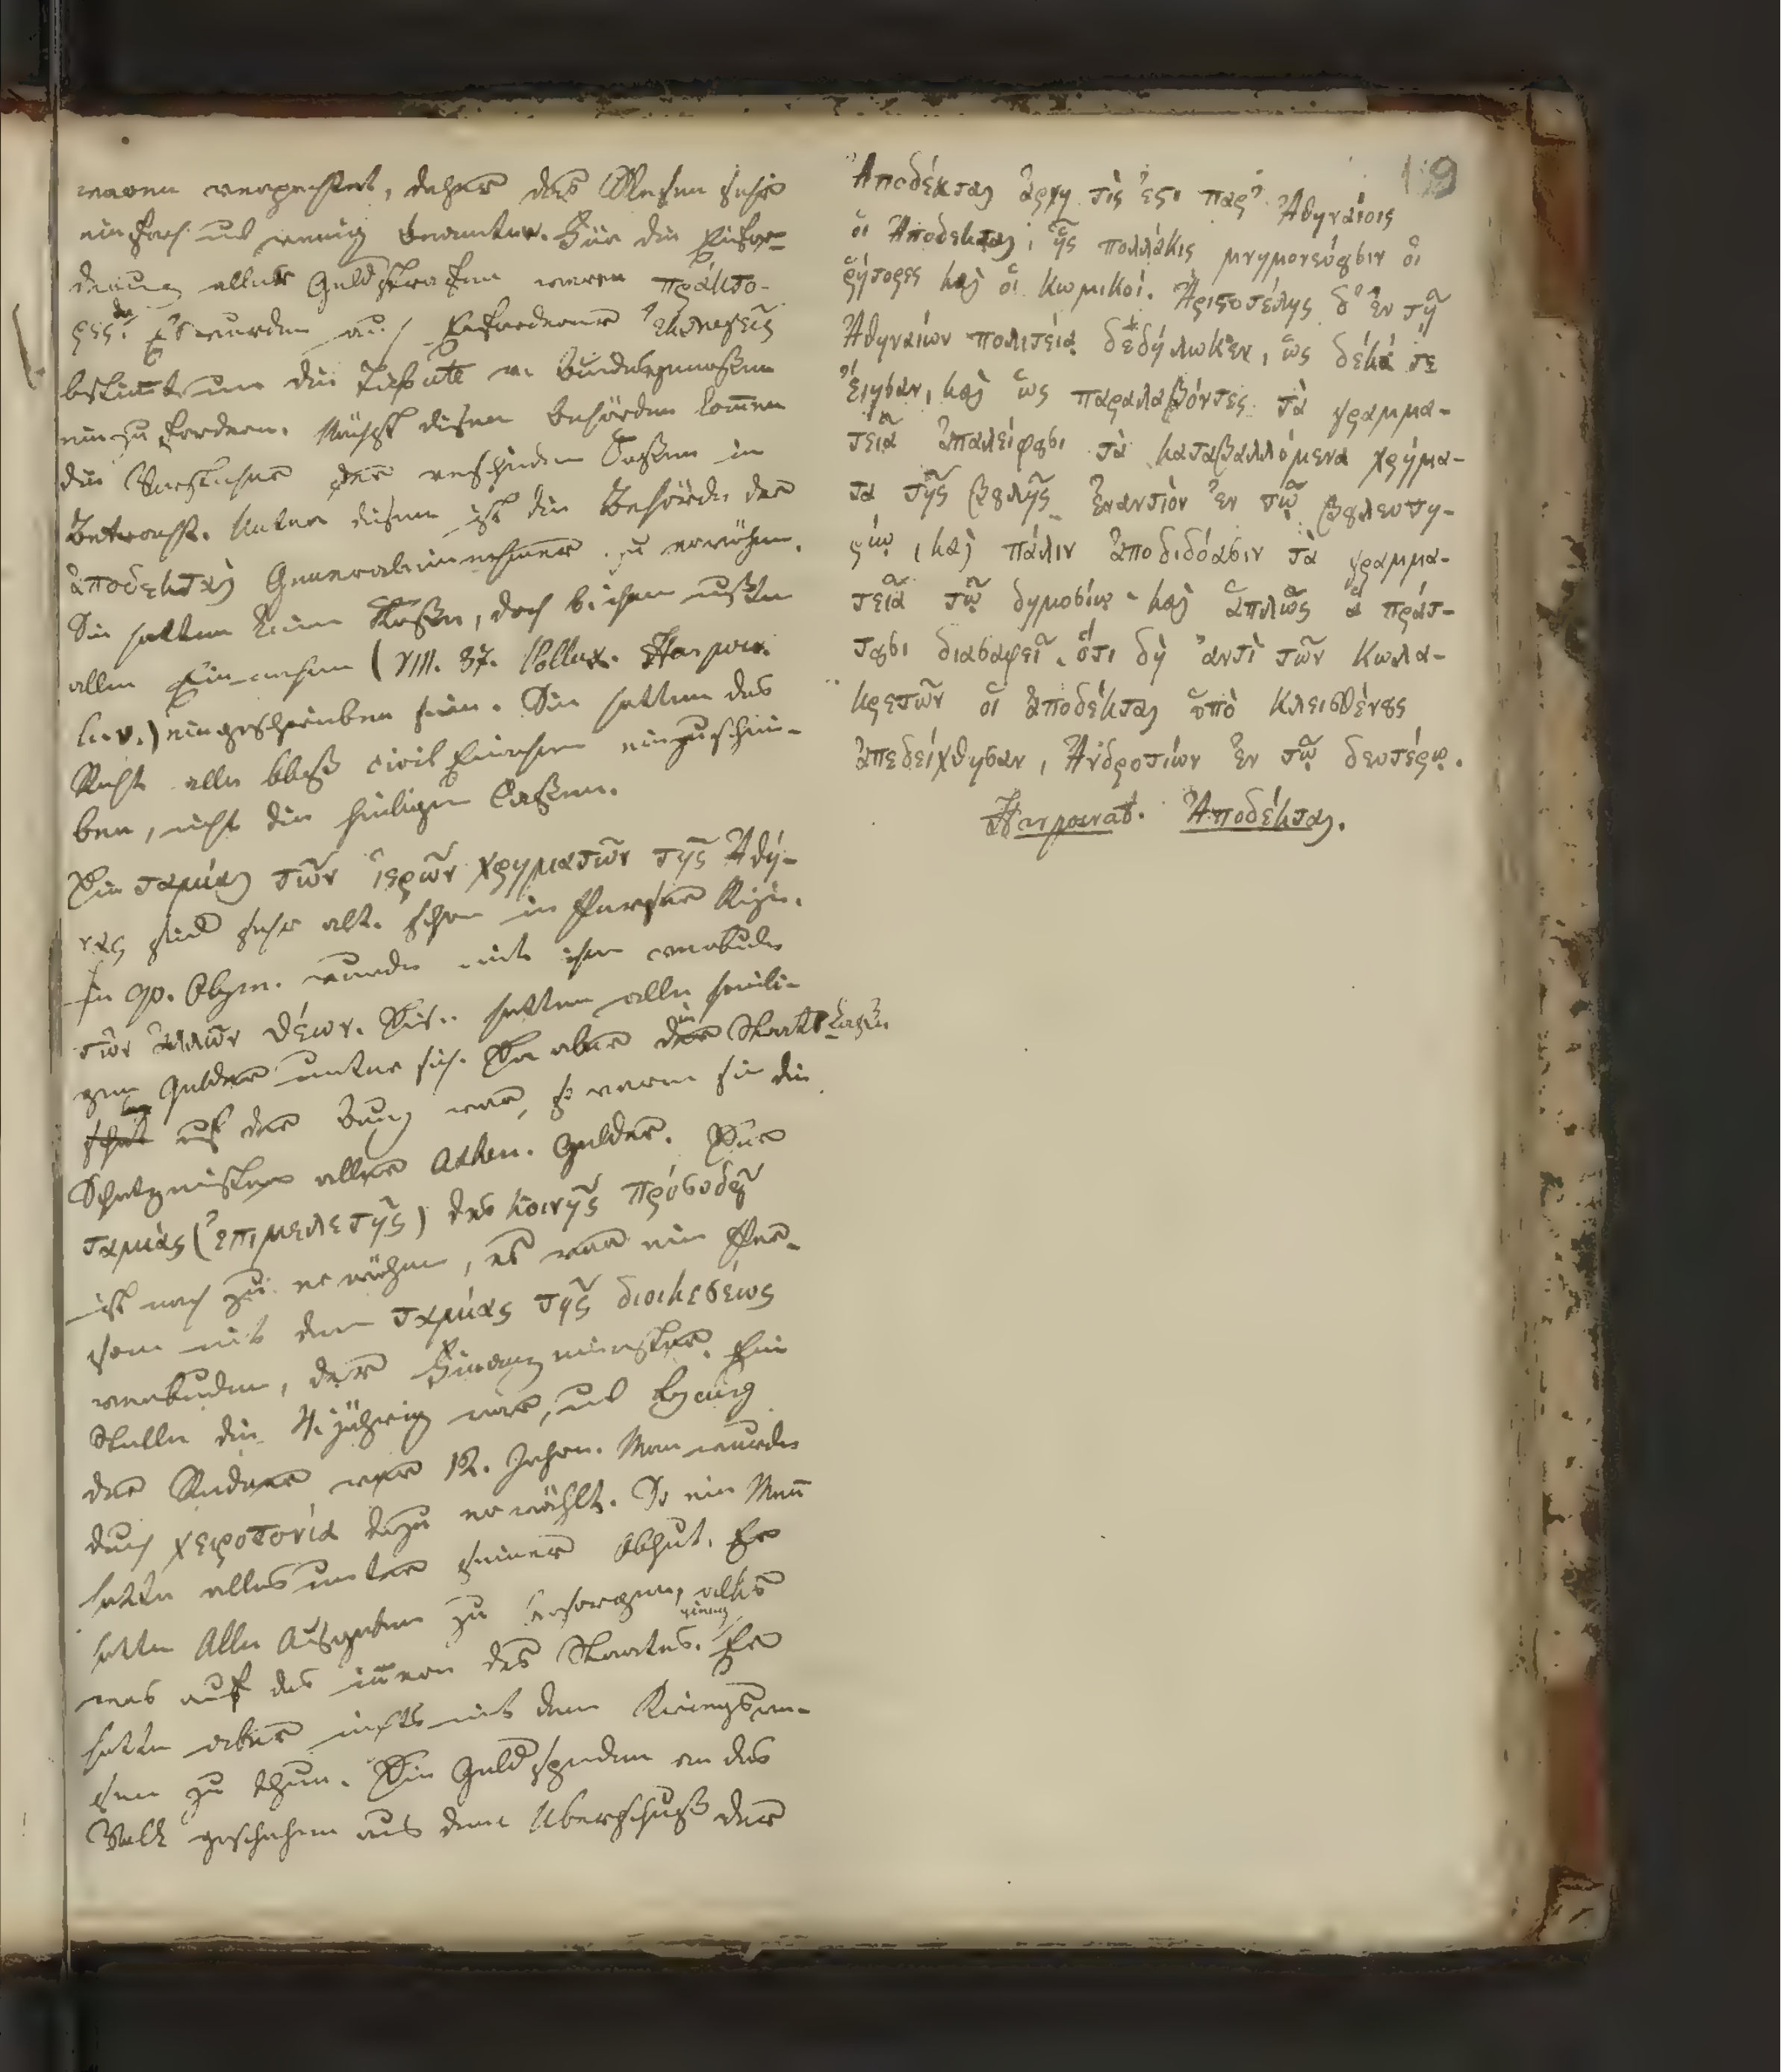 waren verpachtet, daher das Wesen sehr
einfach und wenig Beamten. Für die Einfor-
derung aller Geldstrafen waren πράκτο-
ρες. Es wurden auch Einforderer ἐκλογεῖς
bestimt um die Tribute von Bundesgenoßen
einzufordern. Nächst diesen Behörden komen
die Vorsteher der verschieden Caßen in
Betracht. Unter diesen ist die Behörde der
ἀποδέκται Generaleinnehmer zu erwähn.
Sie hatten keine Kaßen, doch bei ihnen mußten
alle Einnahmen (VIII. 97. Pollux. Harpocr.
h. v.) eingeschrieben sein. Sie hatten das
Recht alle bloß civil Einahmen einzuschrei-
ben, nicht die heiligen Caßen.
Die ταμίαι τῶν ἱερῶν χρηματῶν τῆς Ἀθη-
νᾶς sind sehr alt. schon in Perser Kriege.
In 90. Olym. wurde mit ihm verbunden
τῶν ἄλλων θέων. Diese hatten alle heili-
gen Gelder unter sich. Da aber die Staats Caße
auf der Burg war, so waren sie die
Schatzmeister aller Athen. Gelder. Der
ταμίας (ἐπιμελετῆς) des κοινῆς πρόσοδȣ
ist noch zu erwähnen, es war eine Per-
son mit dem ταμίας τῆς διοικεσέως
verbunden, der Finanzminister. Eine
Stelle die 4. jährig war, und
der Redner war 12. Jahren. Man wurde
durch χειροτονία dazu erwählt. So ein Mann
hatte alles unter seiner Obhut. Er
hatte alle Ausgaben zu besorgen, alles
was auf das innern des Staates gieng. Er
hatte aber nichts mit dem Kriegswe-
sen zu thun. Die Geldspenden an das
Volk geschahen aus dem Uberschuß der
19
Ἀποδέκται ἀρχη τὶς ἐςι παρ' Ἀθηναίοις
οἱ Ἀποδεκται, ἧς πολλάκις μνημονεύȣσιν οἱ
ῥήτορες καὶ οἱ κωμικοί. Ἀριςοτέλης δ' ἐν τῇ
Ἀθηναίων πολιτείᾳ δεδήλωκεν, ὡς δέκα τε
ἔιησαν, καὶ ὡς παραλαβόντες τὰ γραμμα-
τεῖα ἀπαλείφȣσι τὰ καταβαλλόμενα χρήμα-
τα τῆς βȣλῆς ἐναντιὸν ἐν τῷ βȣλευτη-
ρίῳ, καὶ πάλιν ἀποδιδόασιν τὰ γραμμα-
τεῖα τῷ δημοσίῳ - καὶ ἁπλῶς ἃ πράτ-
τȣσι διασαφεῖ. ὅτι δὴ ἀντὶ τῶν Κωλα-
κρετῶν οἱ ἀποδέκται ὑπὸ Κλεισθένȣς
ἀπεδείχθησαν, Ἀνδροτίων ἐν τῷ δευτέρῳ.
Harpocrat. Ἀποδέκται.